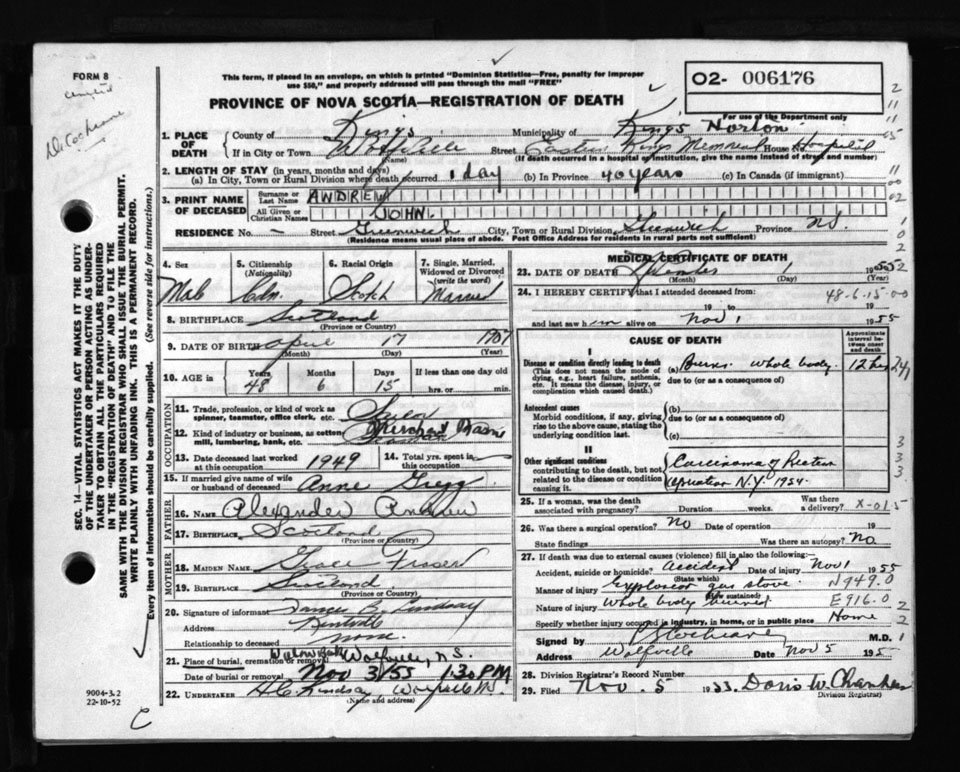 FORM 8
This form, if placed in an envelope, on which is printed "Dominion Statistics—Free, penalty for improper
use $50," and properly addressed will pass through the mail "FREE"
O2- 006176
For use of the Department only
PROVINCE OF NOVA SCOTIA—REGISTRATION OF DEATH
1. PLACE OF DEATH County of Kings Municipality of Kings Horton
If in City or Town Wolfville (Name) Street Eastern Kings Memorial House No. Hospital
(If death occurred in a hospital or institution, give the name instead of street and number)
2. LENGTH OF STAY (in years, months and days)
(a) In City, Town or Rural Division where death occurred 1 day (b) In Province 40 years (c) In Canada (if immigrant)
3. PRINT NAME OF DECEASED Surname or Last Name ANDREW
All Given or Christian Names JOHN.
RESIDENCE No. — Street Greenwich City, Town or Rural Division Greenwich Province N.S.
(Residence means usual place of abode. Post Office Address for residents in rural parts not sufficient)
4. Sex Male
5. Citizenship (Nationality) Cdn.
6. Racial Origin Scotch
7. Single, Married, Widowed or Divorced (write the word) Married
8. BIRTHPLACE Scotland
(Province or Country)
9. DATE OF BIRTH April 17 1907
(Month) (Day) (Year)
10. AGE in Years 48 Months 6 Days 15 If less than one day old
hrs. or min.
OCCUPATION
11. Trade, profession, or kind of work as spinner, teamster, office clerk, etc. Sailor
12. Kind of industry or business, as cotton mill, lumbering, bank, etc. Merchant Marine
13. Date deceased last worked at this occupation 1949 14. Total yrs. spent in this occupation
15. If married give name of wife or husband of deceased Anne Gregg
FATHER
16. Name Alexander Andrew
17. Birthplace Scotland
(Province or Country)
MOTHER
18. MAIDEN NAME Grace Fraser
19. BIRTHPLACE Scotland
(Province or Country)
20. Signature of informant B. Lindsay
Address Kentville
Relationship to deceased none.
21. Place of burial, cremation or removal Willowbank Wolfville, N.S.
Date of burial or removal Nov 3/55 1:30 PM
22. UNDERTAKER H.C. Lindsay, Wolfville N.S.
(Name and address)
MEDICAL CERTIFICATE OF DEATH
23. DATE OF DEATH 1955
(Month) (Day) (Year)
24. I HEREBY CERTIFY that I attended deceased from:
48-6-15-00
19 to 19
and last saw him alive on Nov 1 1955
CAUSE OF DEATH
Approximate interval between onset and death
I
Disease or condition directly leading to death
(This does not mean the mode of dying, e.g., heart failure, asthenia, etc. It means the disease, injury, or complication which caused death.)
(a) Burns whole body. 12 hrs
due to (or as a consequence of)
Antecedent causes
Morbid conditions, if any, giving rise to the above cause, stating the underlying condition last.
(b)
due to (or as a consequence of)
(c)
II
Other significant conditions contributing to the death, but not related to the disease or condition causing it.
Carcinoma of Rectum
Operation N.Y. 1954.
25. If a woman, was the death associated with pregnancy? Duration weeks. Was there a delivery? X-015
26. Was there a surgical operation? No Date of operation 19
State findings Was there an autopsy? No
27. If death was due to external causes (violence) fill in also the following:
Accident, suicide or homicide? Accident Nov 1 1955
(State which)
Manner of injury Explosion gas stove. N949.0
(How sustained)
Nature of injury Whole body burned E916.0
Specify whether injury occurred in industry, in home, or in public place Home
Signed by Cochrane M.D.
Address Wolfville Date Nov 5 1955
28. Division Registrar's Record Number
29. Filed Nov. 5 1955 Doris W. Chambers
Division Registrar)
SEC. 14—VITAL STATISTICS ACT MAKES IT THE DUTY OF THE UNDERTAKER OR PERSON ACTING AS UNDERTAKER TO OBTAIN ALL THE PARTICULARS REQUIRED IN THE "REGISTRATION OF DEATH" AND TO FILE THE SAME WITH THE DIVISION REGISTRAR WHO SHALL ISSUE THE BURIAL PERMIT.
WRITE PLAINLY WITH UNFADING INK. THIS IS A PERMANENT RECORD.
Every item of information should be carefully supplied. (See reverse side for instructions.)
Dr Cochrane
9004-3.2
22-10-52